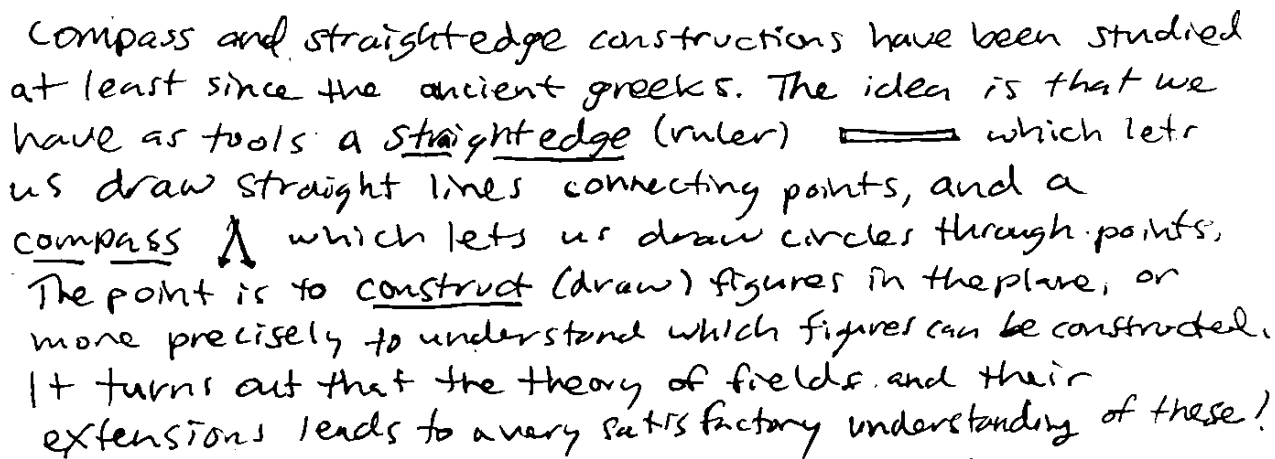 Compass and straightedge constructions have been studied
at least since the ancient greeks. The idea is that we
have as tools a straightedge (ruler) which lets
us draw straight lines connecting points, and a
compass which lets us draw circles through points.
The point is to construct (draw) figures in the plane, or
more precisely to understand which figures can be constructed.
It turns out that the theory of fields and their
extensions leads to a very satisfactory understanding of these!